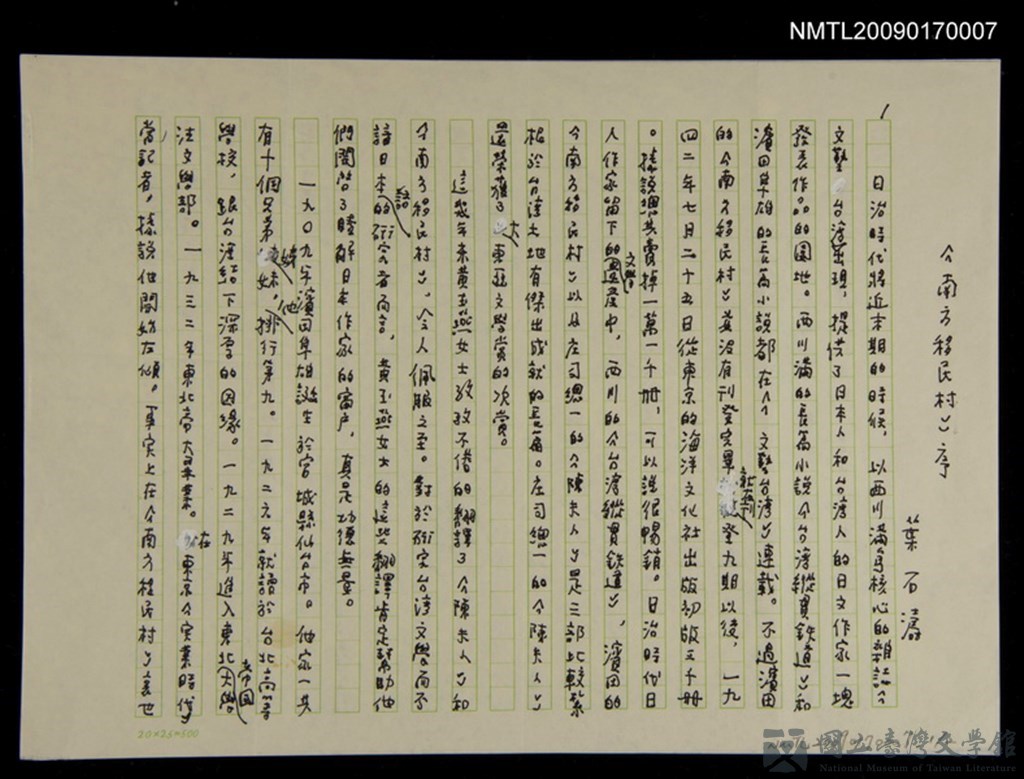 NMTL20090170007
1
《南方移民村》序
葉石濤
日治時代將近末期的時候，以西川滿為核心的雜誌《
文藝台灣》出現，提供了日本人和台灣人的日文作家一塊
發表作品的園地。西川滿的長篇小說《台灣縱貫鉄道》和
濱田隼雄的長篇小說都在《文藝台灣》連載。不過濱田
的《南方移民村》並沒有刊登完畢，就刊登九期以後，一九
四二年七月二十五日從東京的海洋文化社出版初版三千冊
。據說總共賣掉一萬一千冊，可以說很暢銷。日治時代日
人作家留下的文學遺產中，西川的《台灣縱貫鉄道》，濱田的
《南方移民村》以及庄司總一的《陳夫人》是三部比較紮
根於台灣土地有傑出成就的長篇。庄司總一的《陳夫人》
還榮獲了大東亞文學賞的次賞。
這幾年來黃玉燕女士孜孜不倦的翻譯了《陳夫人》和
《南方移民村》，令人佩服之至。對於研究台灣文學而不
諳日本語的研究者而言，黃玉燕女士的這些翻譯肯定幫助他
們開啓了瞭解日本作家的窗户，真是功德無量。
一九〇九年濱田隼雄誕生於宮城縣仙台市。他家一共
有十個兄弟姊妹，他排行第九。一九二六年就讀於台北高等
學校，跟台灣結下深厚的因緣。一九二九年進入東北帝國大學
法文學部。一九三二年東北帝大畢業。在東京《實業時代》
當記者，據說他開始左傾。事實上在《南方移民村》裏也
20×25=500
國立臺灣文學館
National Museum of Taiwan Literature